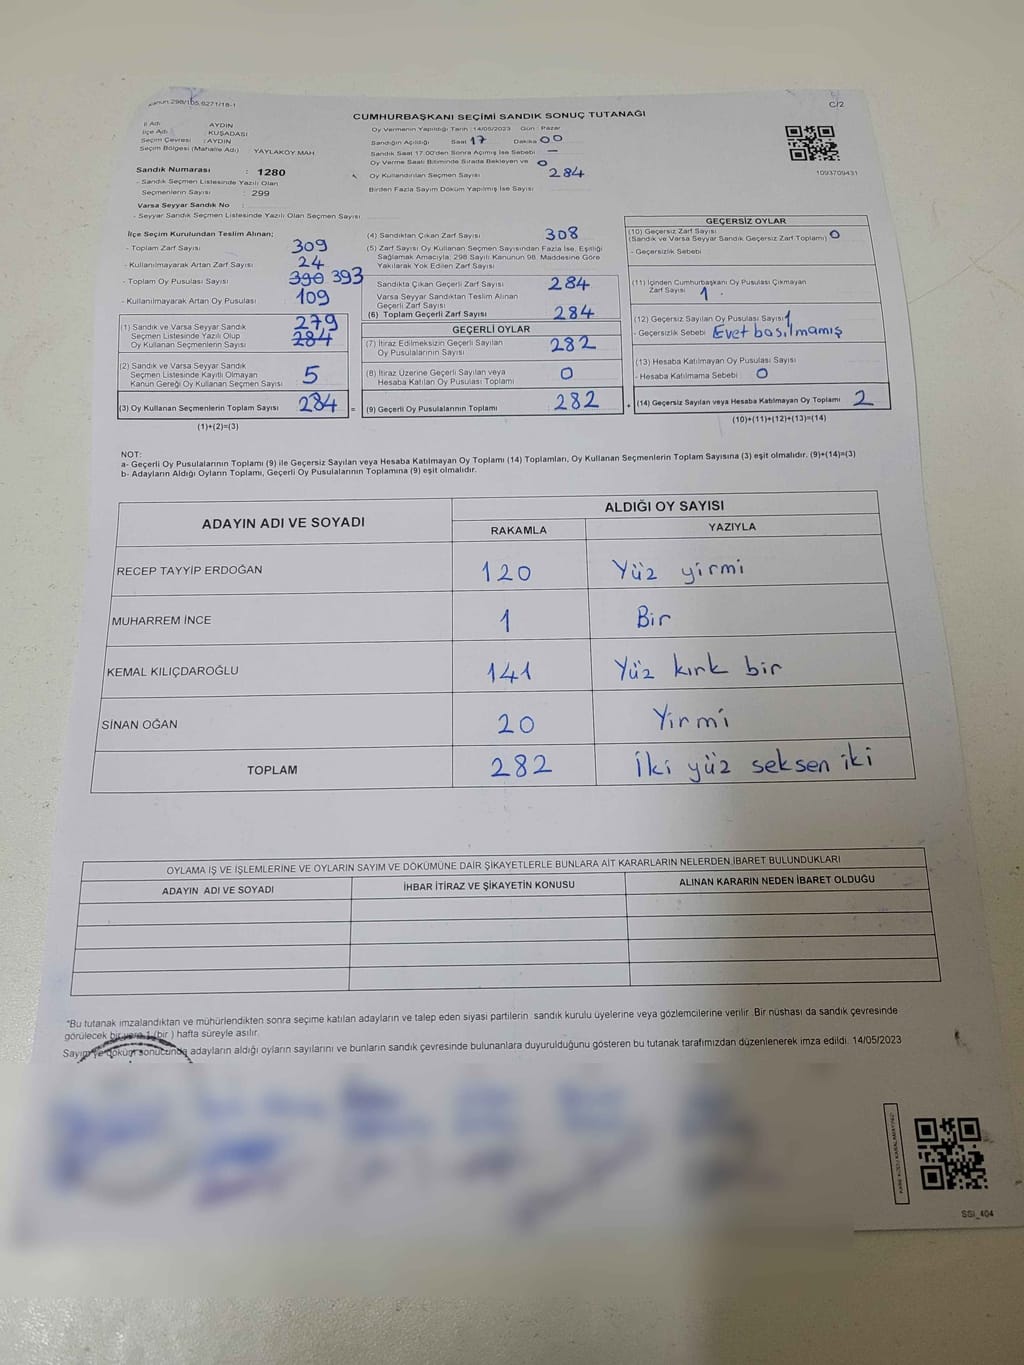 Kanun:298/105,6271/18-1
C/2
CUMHURBAŞKANI SEÇİMİ SANDIK SONUÇ TUTANAĞI
İl Adı : AYDIN
İlçe Adı : KUŞADASI
Seçim Çevresi : AYDIN
Seçim Bölgesi (Mahalle Adı) YAYLAKÖY MAH.
Sandık Numarası : 1280
- Sandık Seçmen Listesinde Yazılı Olan
Seçmenlerin Sayısı : 299
Varsa Seyyar Sandık No :
- Seyyar Sandık Seçmen Listesinde Yazılı Olan Seçmen Sayısı
Oy Vermenin Yapıldığı Tarih :14/05/2023 Gün : Pazar
Sandığın Açıldığı Saat 17 Dakika 00
Sandık Saat 17.00'den Sonra Açılmış İse Sebebi —
Oy Verme Saati Bitiminde Sırada Bekleyen ve 0
Oy Kullandırılan Seçmen Sayısı 284
Birden Fazla Sayım Döküm Yapılmış İse Sayısı
1093709431
İlçe Seçim Kurulundan Teslim Alınan;
- Toplam Zarf Sayısı 309
- Kullanılmayarak Artan Zarf Sayısı 24
- Toplam Oy Pusulası Sayısı 390 393
- Kullanılmayarak Artan Oy Pusulası 109
(1) Sandık ve Varsa Seyyar Sandık 279
Seçmen Listesinde Yazılı Olup 284
Oy Kullanan Seçmenlerin Sayısı
(2) Sandık ve Varsa Seyyar Sandık
Seçmen Listesinde Kayıtlı Olmayan 5
Kanun Gereği Oy Kullanan Seçmen Sayısı
(3) Oy Kullanan Seçmenlerin Toplam Sayısı 284 =
(1)+(2)=(3)
(4) Sandıktan Çıkan Zarf Sayısı 308
(5) Zarf Sayısı Oy Kullanan Seçmen Sayısından Fazla İse, Eşitliği
Sağlamak Amacıyla; 298 Sayılı Kanunun 98. Maddesine Göre
Yakılarak Yok Edilen Zarf Sayısı
Sandıkta Çıkan Geçerli Zarf Sayısı 284
Varsa Seyyar Sandıktan Teslim Alınan
Geçerli Zarf Sayısı
(6) Toplam Geçerli Zarf Sayısı 284
GEÇERLİ OYLAR
(7) İtiraz Edilmeksizin Geçerli Sayılan 282
Oy Pusulalarının Sayısı
(8) İtiraz Üzerine Geçerli Sayılan veya 0
Hesaba Katılan Oy Pusulası Toplamı
(9) Geçerli Oy Pusulalarının Toplamı 282 +
GEÇERSİZ OYLAR
(10) Geçersiz Zarf Sayısı
(Sandık ve Varsa Seyyar Sandık Geçersiz Zarf Toplamı) 0
- Geçersizlik Sebebi
(11) İçinden Cumhurbaşkanı Oy Pusulası Çıkmayan
Zarf Sayısı 1
(12) Geçersiz Sayılan Oy Pusulası Sayısı 1
- Geçersizlik Sebebi Evet basılmamış
(13) Hesaba Katılmayan Oy Pusulası Sayısı
- Hesaba Katılmama Sebebi 0
(14) Geçersiz Sayılan veya Hesaba Katılmayan Oy Toplamı 2
(10)+(11)+(12)+(13)=(14)
NOT:
a- Geçerli Oy Pusulalarının Toplamı (9) ile Geçersiz Sayılan veya Hesaba Katılmayan Oy Toplamı (14) Toplamları, Oy Kullanan Seçmenlerin Toplam Sayısına (3) eşit olmalıdır. (9)+(14)=(3)
b- Adayların Aldığı Oyların Toplamı, Geçerli Oy Pusulalarının Toplamına (9) eşit olmalıdır.
ADAYIN ADI VE SOYADI
ALDIĞI OY SAYISI
RAKAMLA YAZIYLA
RECEP TAYYİP ERDOĞAN 120 Yüz yirmi
MUHARREM İNCE 1 Bir
KEMAL KILIÇDAROĞLU 141 Yüz kırk bir
SİNAN OĞAN 20 Yirmi
TOPLAM 282 İki yüz seksen iki
OYLAMA İŞ VE İŞLEMLERİNE VE OYLARIN SAYIM VE DÖKÜMÜNE DAİR ŞİKAYETLERLE BUNLARA AİT KARARLARIN NELERDEN İBARET BULUNDUKLARI
ADAYIN ADI VE SOYADI İHBAR İTİRAZ VE ŞİKAYETİN KONUSU ALINAN KARARIN NEDEN İBARET OLDUĞU
"Bu tutanak imzalandıktan ve mühürlendikten sonra seçime katılan adayların ve talep eden siyasi partilerin sandık kurulu üyelerine veya gözlemcilerine verilir. Bir nüshası da sandık çevresinde
görülecek bir yere 1 (bir ) hafta süreyle asılır.
Sayım ve döküm sonucunda adayların aldığı oyların sayılarını ve bunların sandık çevresinde bulunanlara duyurulduğunu gösteren bu tutanak tarafımızdan düzenlenerek imza edildi. 14/05/2023
SSI_404